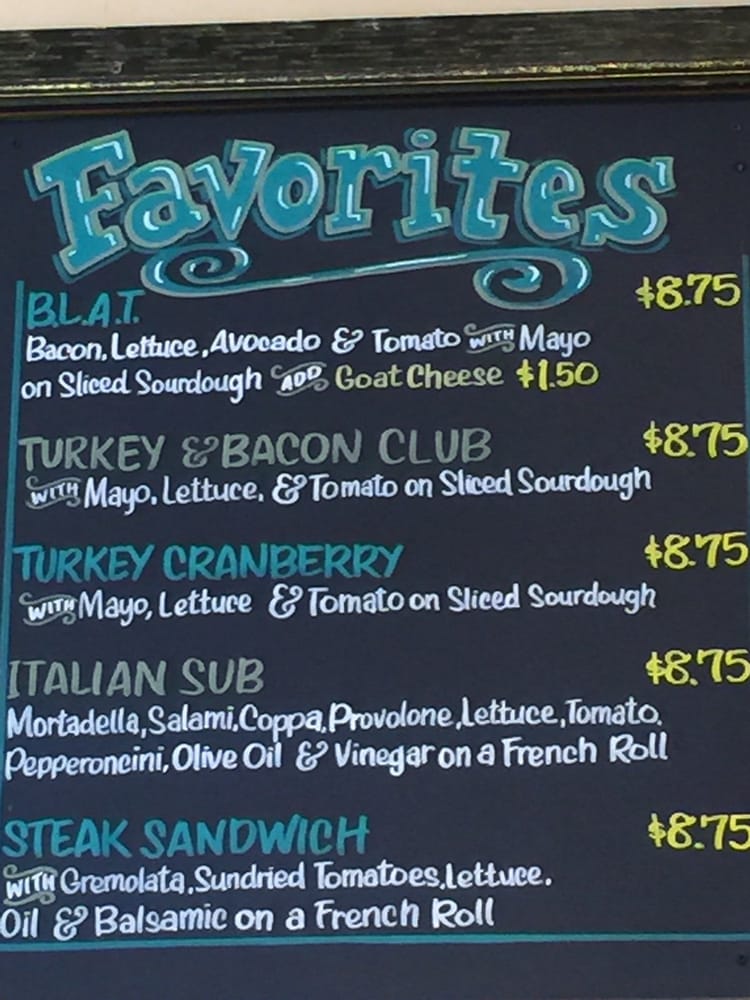 Favorites
B.L.A.T. $8.75
Bacon, Lettuce, Avocado & Tomato WITH Mayo
on Sliced Sourdough ADD Goat Cheese $1.50
TURKEY & BACON CLUB $8.75
WITH Mayo, Lettuce, & Tomato on Sliced Sourdough
TURKEY CRANBERRY $8.75
WITH Mayo, Lettuce & Tomato on Sliced Sourdough
ITALIAN SUB $8.75
Mortadella, Salami, Coppa, Provolone, Lettuce, Tomato,
Pepperoncini, Olive Oil & Vinegar on a French Roll
STEAK SANDWICH $8.75
WITH Gremolata, Sundried Tomatoes, Lettuce.
Oil & Balsamic on a French Roll